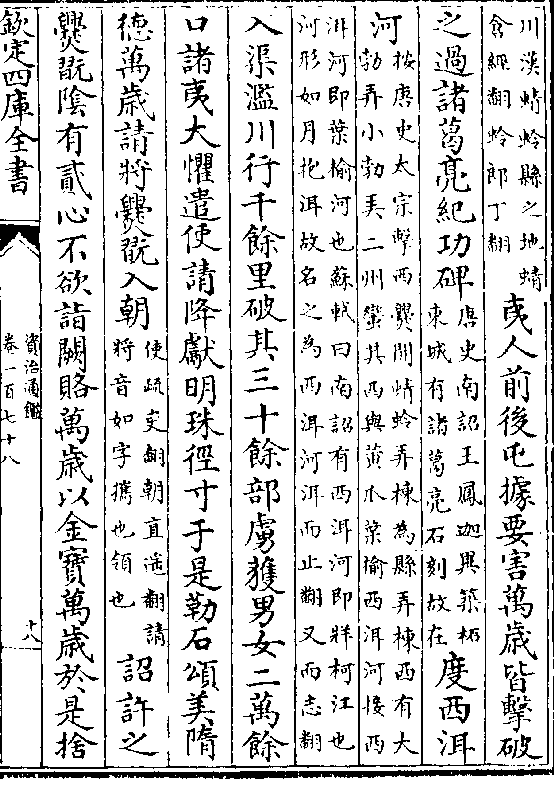 川漢蜻蛉縣之地蜻
倉經翻蛉郎丁翻
夷人前後屯據要害萬歲皆擊破
之過諸葛亮紀功碑
唐史南詔王鳳迦異築柘
東城有諸葛亮石刻故在
度西洱
河
按唐史太宗擊西爨開蜻蛉弄棟為縣弄棟西有大
勃弄小勃弄二州蠻其西與黄瓜葉榆西洱河接西
洱河即葉榆河也蘇軾曰南詔有西洱河即牂柯江也
河形如月抱洱故名之為西洱河洱而止翻又而志翻
入渠濫川行千餘里破其三十餘部虜獲男女二萬餘
口諸夷大懼遣使請降獻明珠徑寸于是勒石頌美隋
德萬歲請將爨翫入朝
使疏吏翻朝直遥翻請
將音如字攜也領也
詔許之
爨翫陰有貳心不欲詣闕賂萬歲以金寶萬歲於是捨
欽定四庫全書
資治通鑑
卷一百七十八
十八